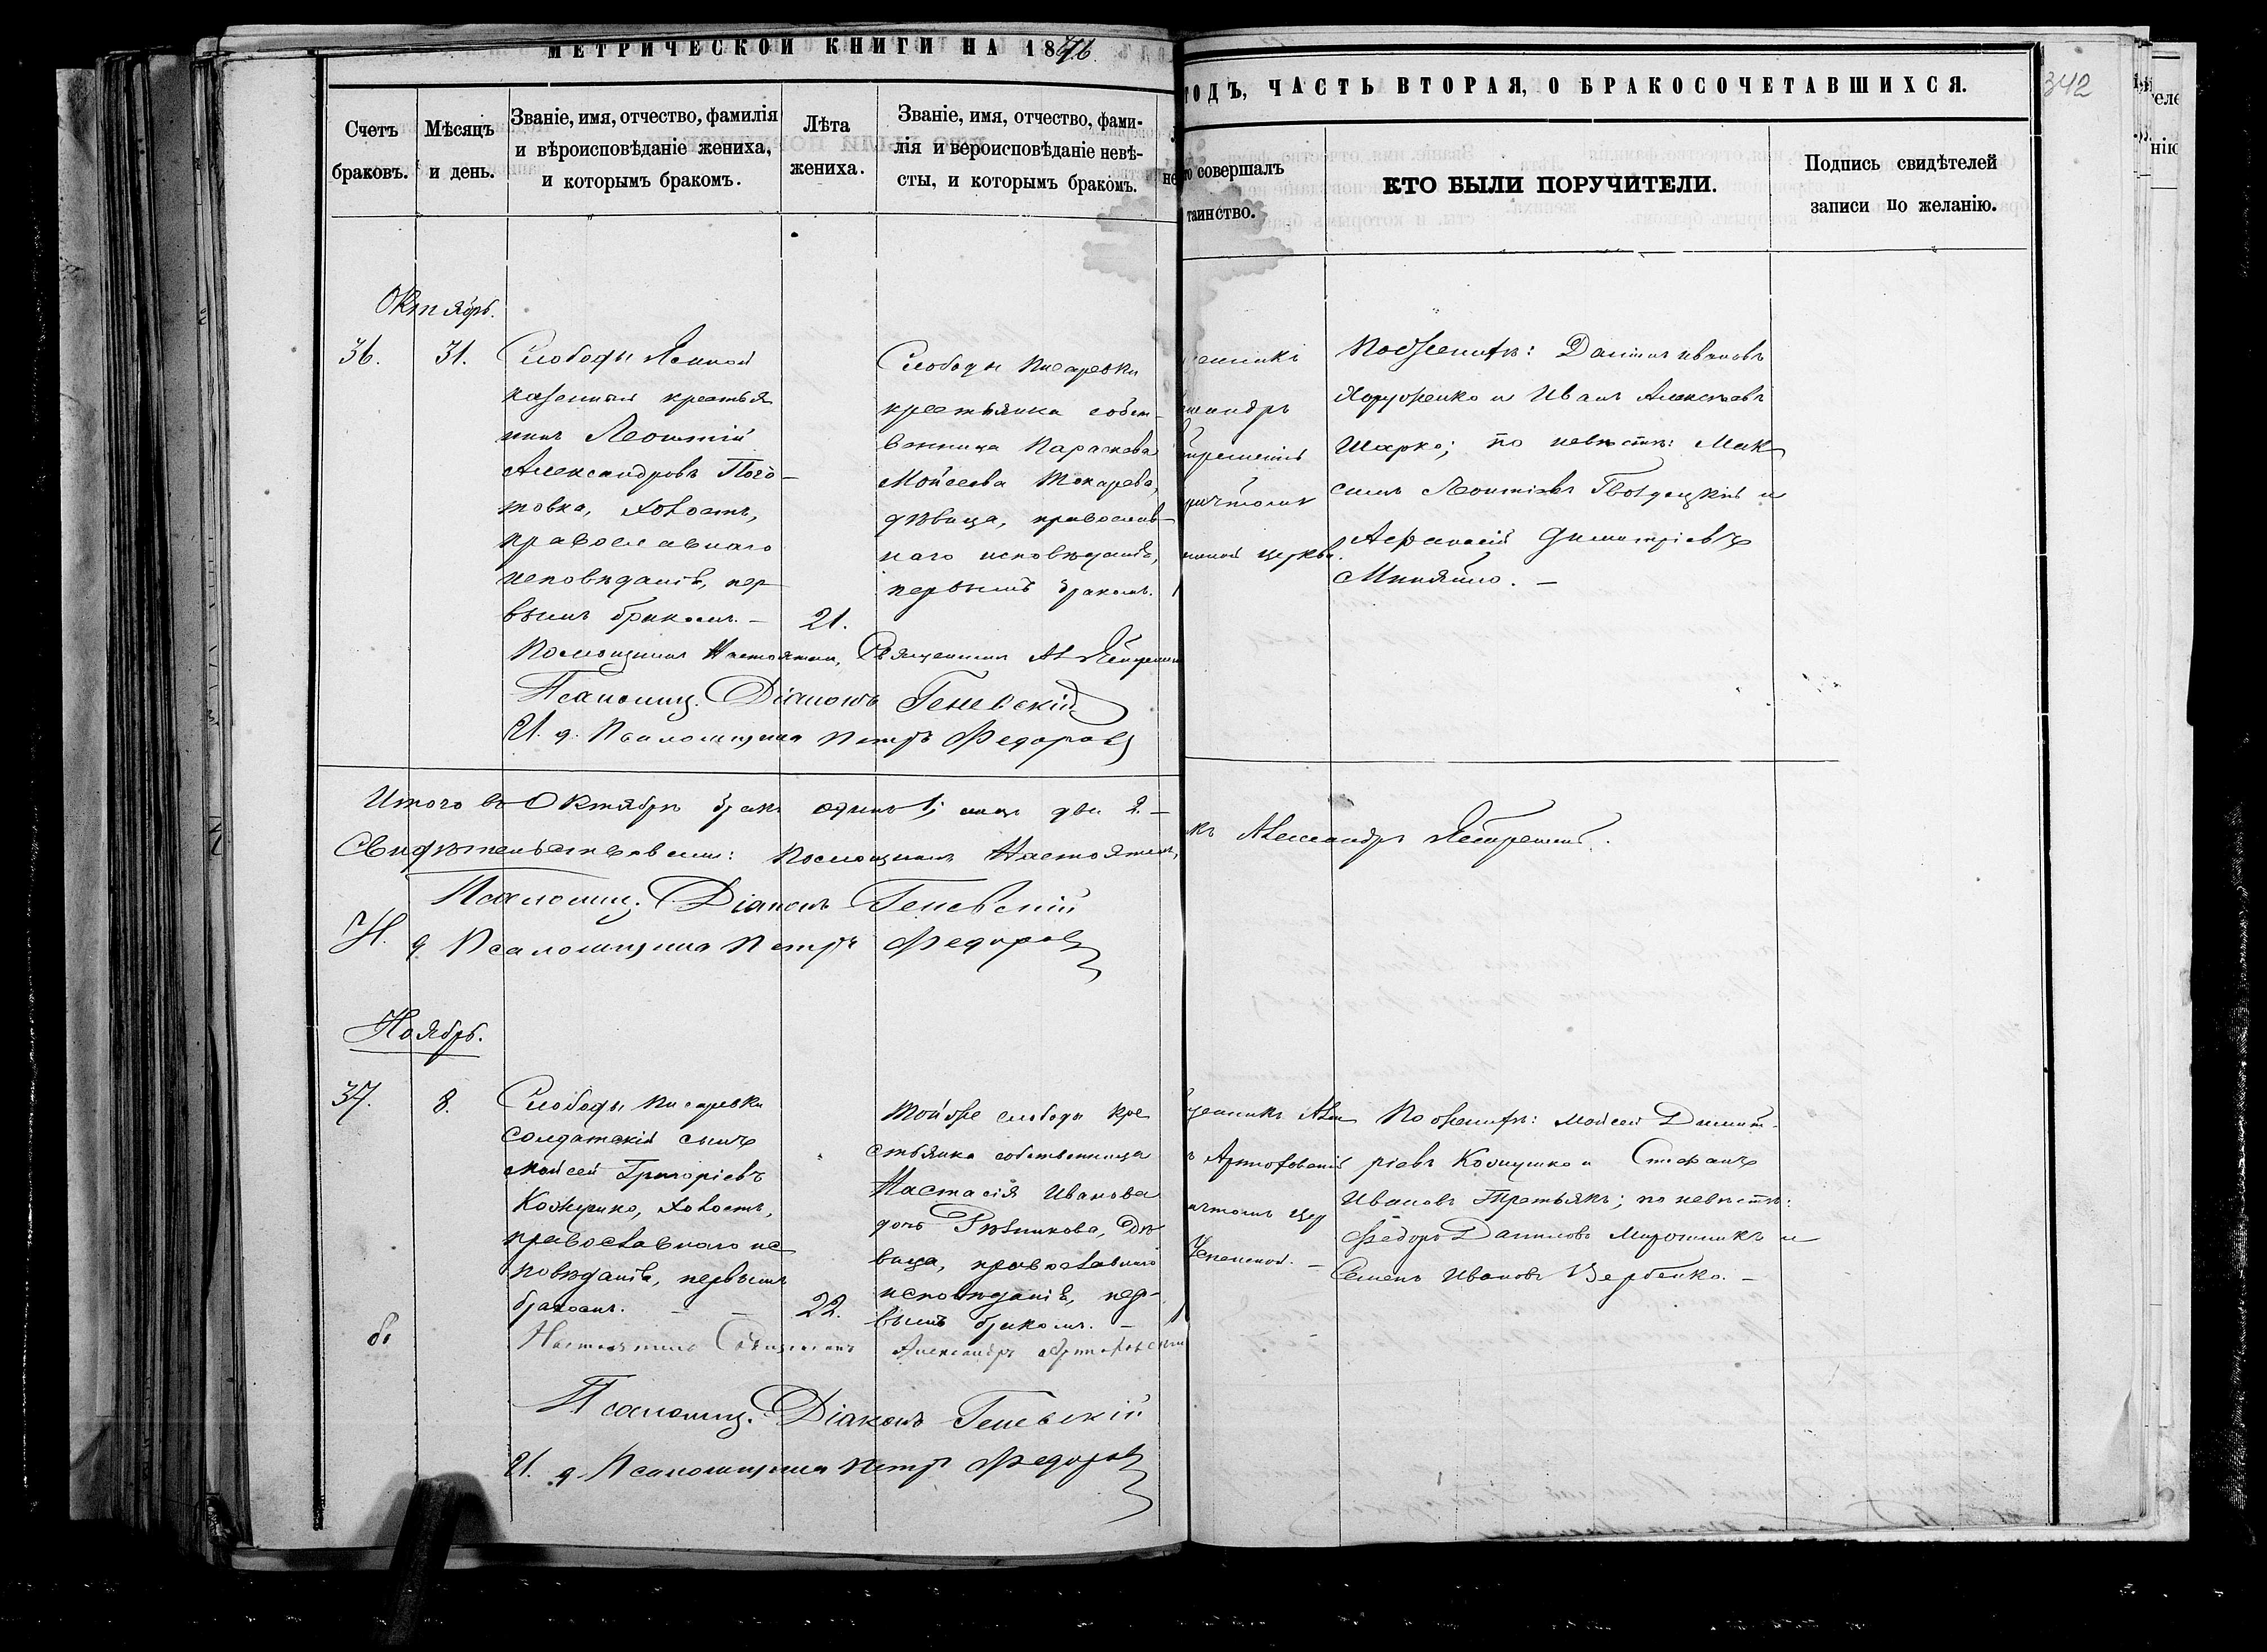 МЕТРИЧЕСКОЙ КНИГИ НА 1876.
ГОДЪ, ЧАСТЬ ВТОРАЯ, О БРАКОСОЧЕТАВШИХСЯ.
342
Счетъ
браковъ.
Мѣсяцъ
и день.
Званіе, имя, отчество, фамилія
и вѣроисповѣданіе жениха,
и которымъ бракомъ.
Лѣта
жениха.
Званіе, имя, отчество, фами-
лія и вероисповѣданіе невѣ-
сты, и которымъ бракомъ.
не
то совершалъ
таинство.
КТО БЫЛИ ПОРУЧИТЕЛИ.
Подпись свидѣтелей
записи по желанію.
Октябрь.
36.
31.
Слободы
казенный крестья
нинъ Леонтій
Александровъ
холостъ,
православнаго
исповѣданія, пер
вымъ бракомъ. —
21.
Слободы Писаревки
крестьянка собст-
венница Параскева
Мойсеева Токарева,
дѣвица, православ-
наго исповѣданія,
первымъ бракомъ.
церкви.
По женихѣ: Даніилъ Ивановъ
Хоруженко и Иванъ Алексѣевъ
Шарко; по невѣстѣ: Мак
симъ Леонтіевъ и
Аѳанасій Димитріевъ
Помощникъ Настоятеля, Священникъ
Псаломщ. Діаконъ Геневскій
И. д. Псаломщика Петръ Федоровъ
Итого въ Октябрѣ бракъ одинъ 1; лицъ два 2. —
Свидѣтельствовали: Помощникъ Настоятеля,
къ Александръ
Псаломщ. Діаконъ Геневскій
И. д. Псаломщика Петръ Федоровъ
Ноябрь.
37.
8.
Слободы Писаревки
солдатскій сынъ
Мойсей Григоріевъ
холостъ,
православнаго ис
повѣданія, первымъ
бракомъ. — —
22.
Той же слободы кре
стьянка собственница
Настасія Иванова
дочь Рѣзникова, дѣ
вица, православнаго
исповѣданія, пер-
вымъ бракомъ. —
Успенской. —
По женихѣ: Мойсей Димит-
ріевъ и Стефанъ
Ивановъ Третьякъ; по невѣстѣ:
Ѳедоръ Даниловъ Мирошникъ и
Семенъ Ивановъ Вербенко. —
Настоятель Священникъ Александръ
Псаломщ. Діаконъ Геневскій
И. д. Псаломщика Петръ Федоровъ